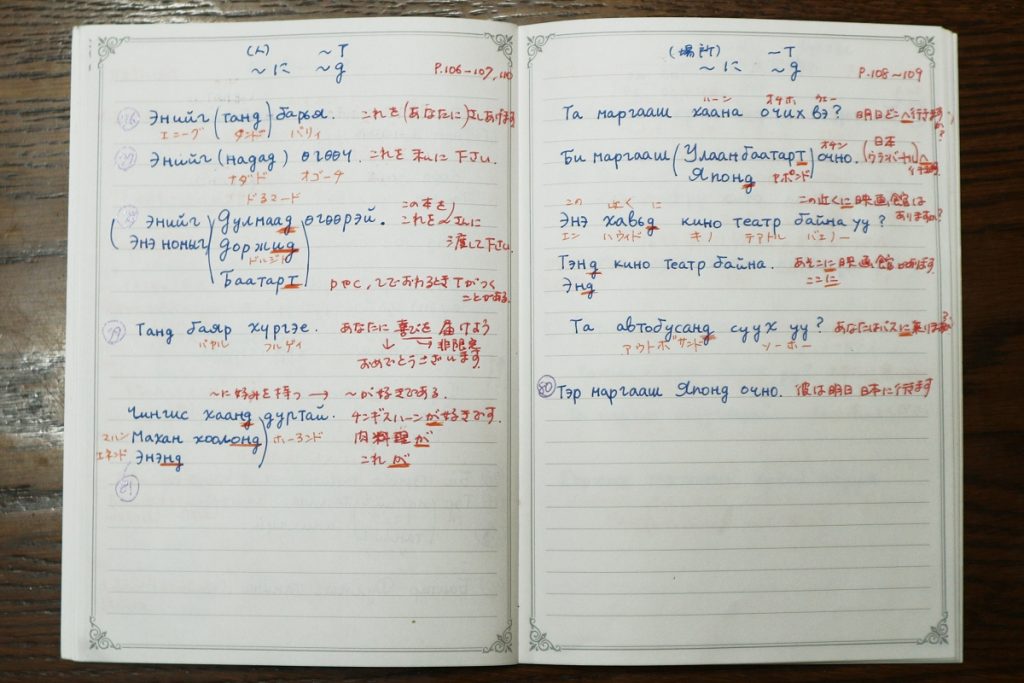 (人) ～T
～に ～g
P.106～107, 110
Энийг (танд) барья. これを(あなたに)さしあげます
エニーグ タンド バリィ
Энийг (надад) өгөөч. これを 私に 下さい.
ナダド オゴーチ
ドるマード
この本を
Энийг Дулмаад өгөөрэй. これを～さんに
Энэ номыг Доржид 渡して下さい
ドルジド
Баатарт рやс, でおわるときTがつく
ことがある.
79 Танд баяр хүргэе. あなたに 喜びを 届けよう
バヤル フルゲイ ↓ → 非限定
おめでとうございます.
～に好みを持つ → ～が好きである.
Чингис хаанд дуртай. チンギスハーンが好きです.
マハン Махан хоолонд ホーろンド 肉料理が
エネンド Энэнд これが
81
(場所) ～T
～に ～g
P.108～109
ハーン オチホ ウェー
Та маргааш хаана очих вэ? 明日どこへ行きますか?
オチン 日本
Би маргааш (Улаанбаатарт) очно. (ウランバートル)へ
Японд ヤポンド 行きます
この 近く に この近くに映画館は
Энэ хавьд кино театр байна уу? ありますか?
エン ハウィド キノ テアトル バェノー
Тэнд кино театр байна. あそこに映画館があります
Энд ここに
Та автобусанд суух уу? あなたはバスに乗りますか?
アウトボサンド ソーホー
80 Тэр маргааш Японд очно. 彼は明日 日本に行きます